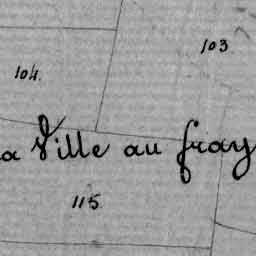 103
104.
a Ville au fray
115